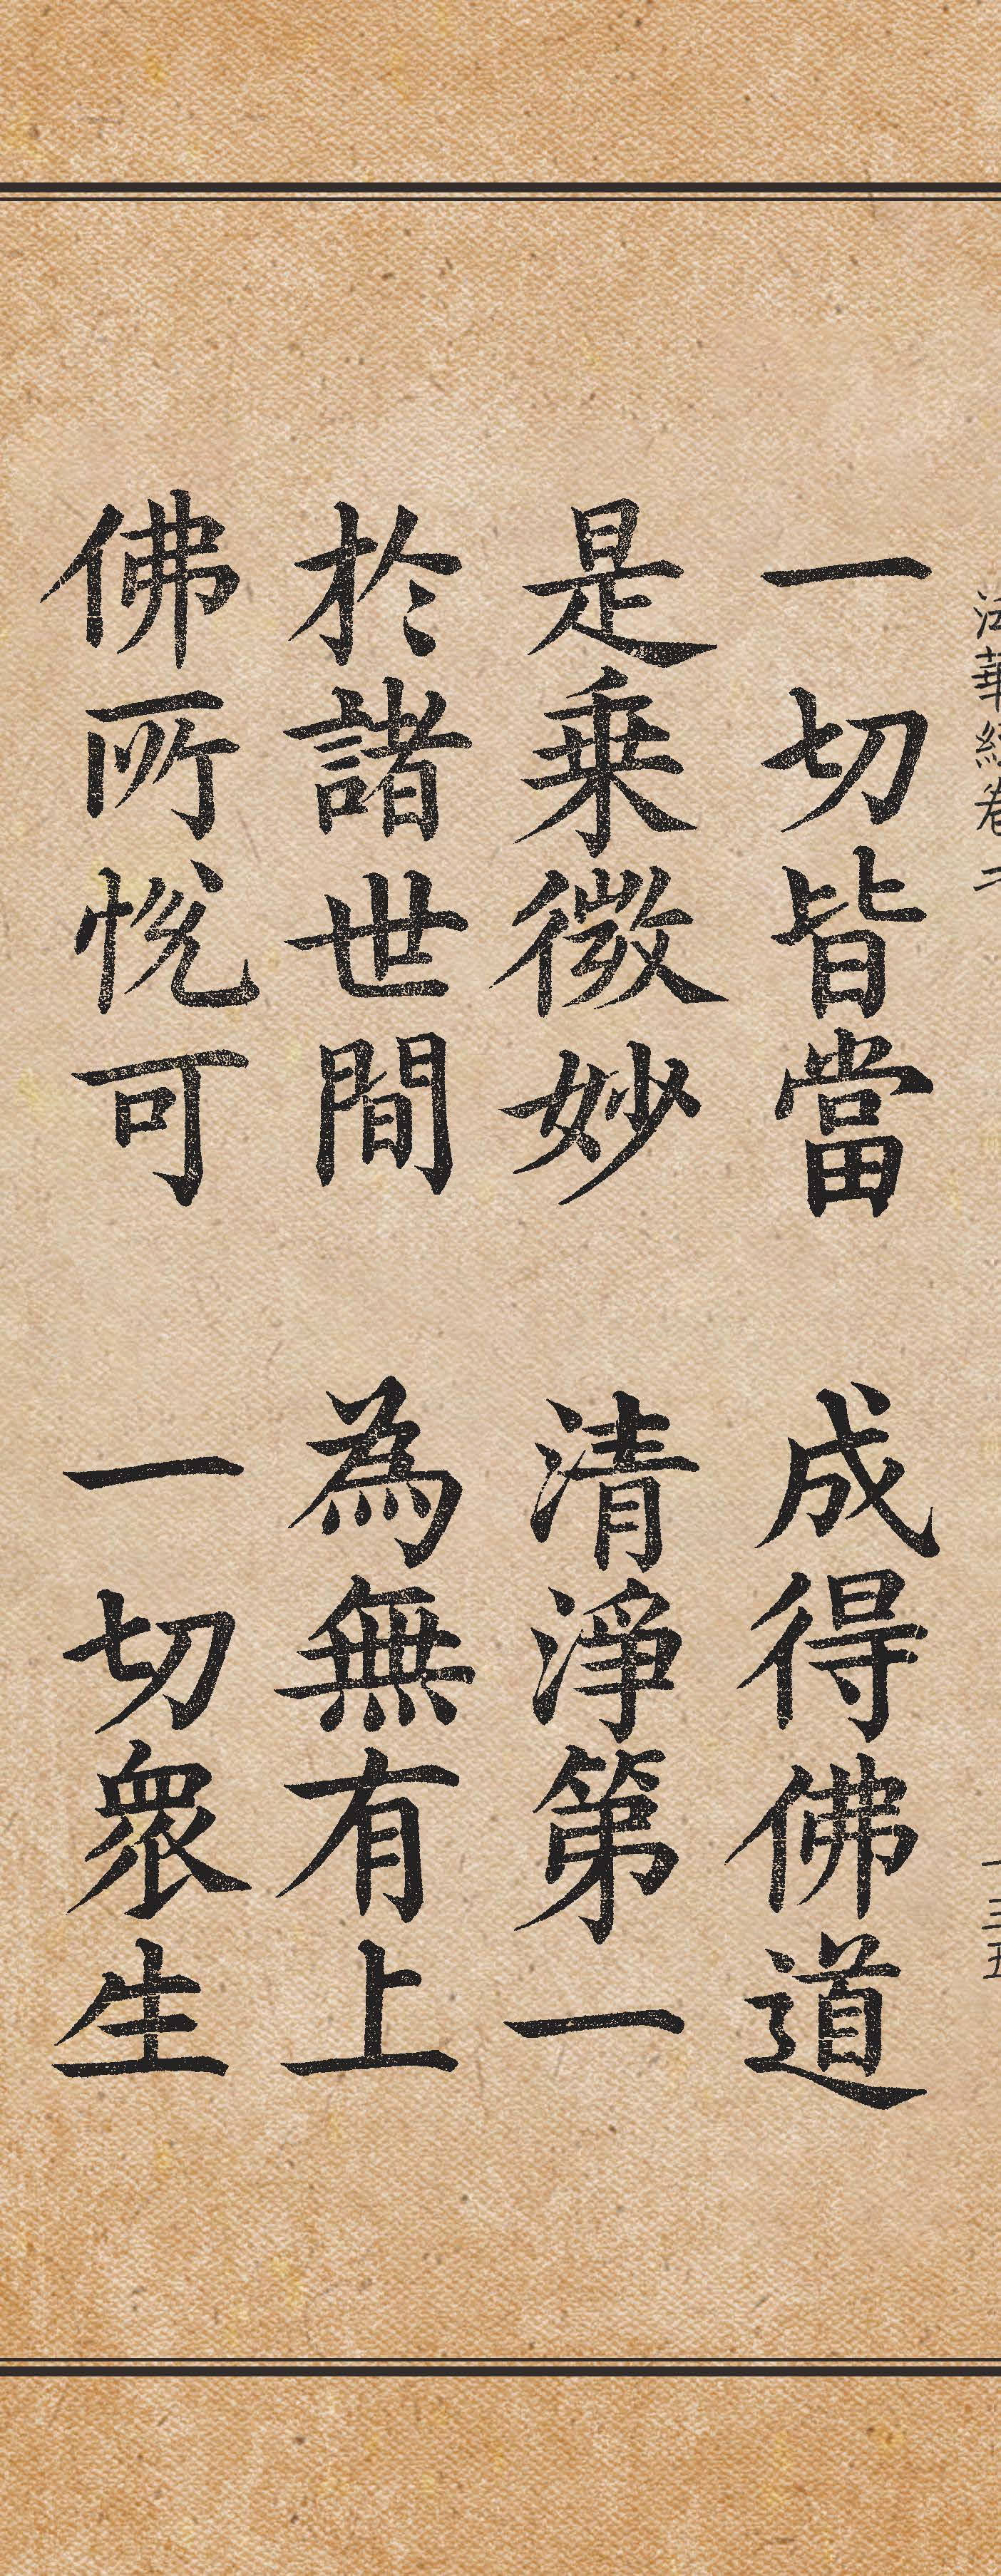 法華經卷二
一三五
一切皆當 成得佛道
是乘微妙 清淨第一
於諸世間 為無有上
佛所悅可 一切眾生